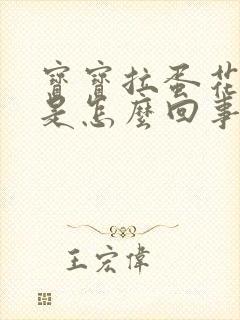 寶寶拉蛋花
是怎麼回事
王宏偉